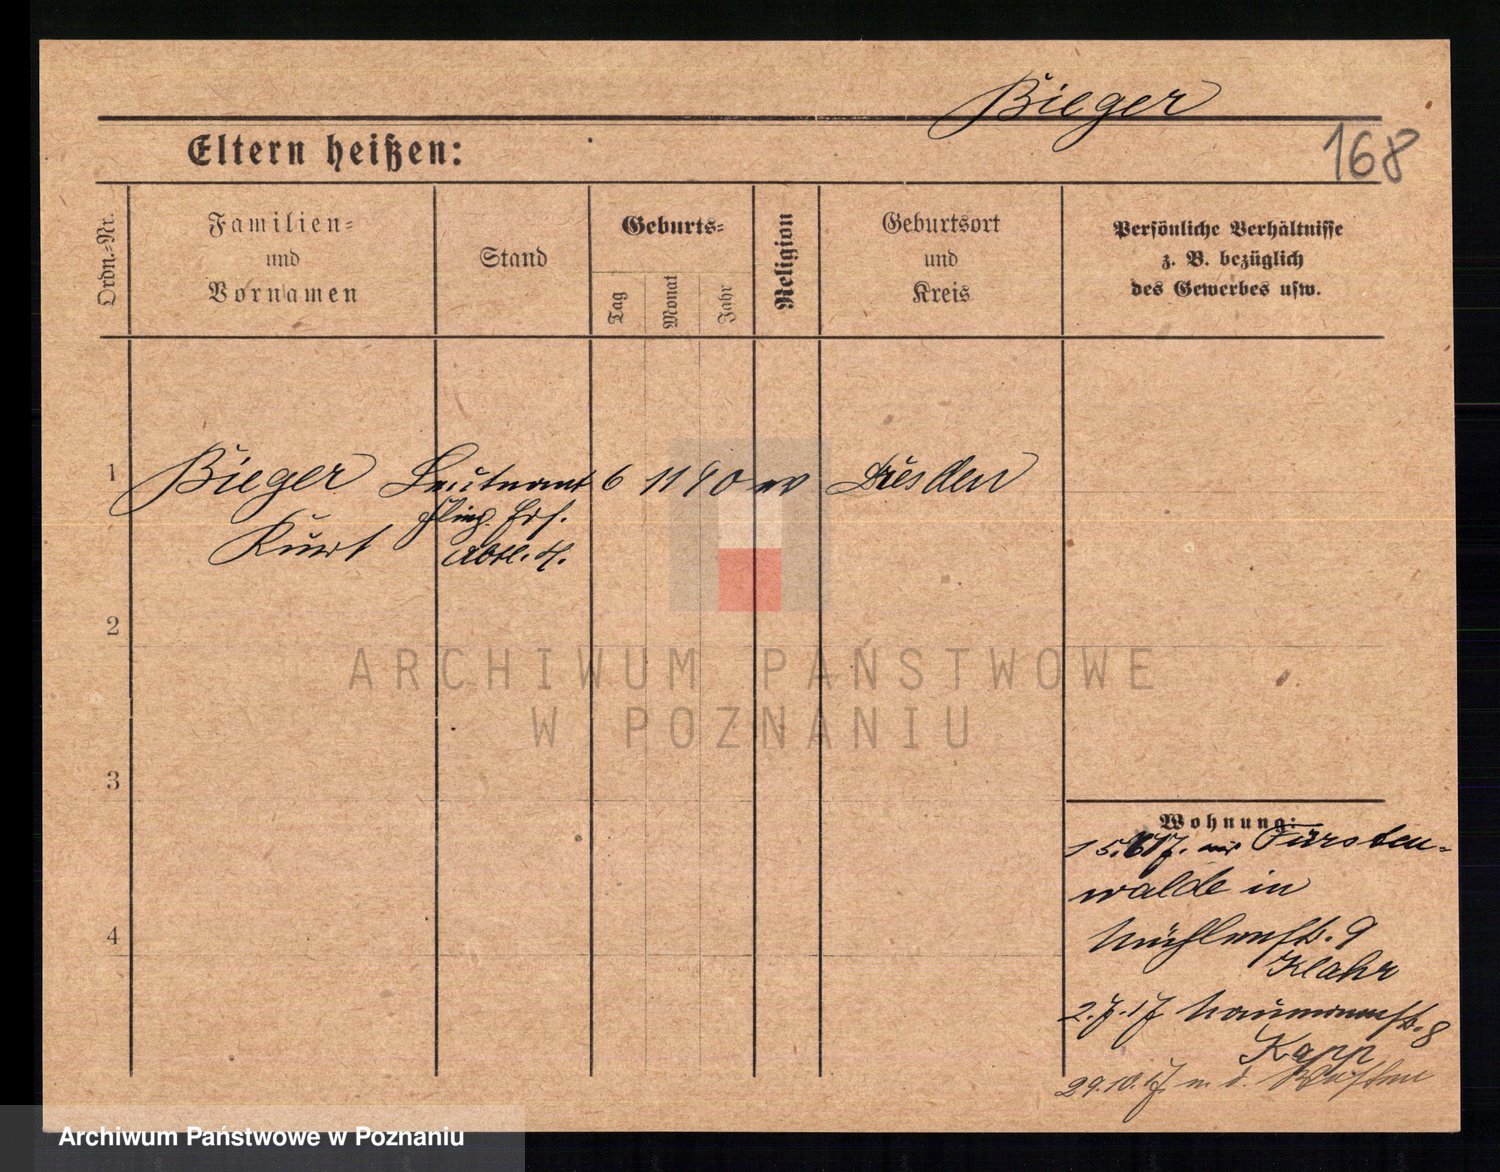 Bieger
168
Eltern heißen:
Ordn.-Nr.
Familien-
und
Vornamen
Stand
Geburts-
Tag
Monat
Jahr
Religion
Geburtsort
und
Kreis
Persönliche Verhältnisse
z. B. bezüglich
des Gewerbes usw.
1 Bieger Leutnant 6 11 90 ev Dresden
Flieg. Ers.
Kurt Abtl. 4.
2
3
4
Wohnung:
15.6.17. aus Fürsten-
walde in
Mühlenstr. 9
Klahr
2.7.17 Naumannstr. 8
Kapp
29.10.17. n. d.
ARCHIWUM PAŃSTWOWE
W POZNANIU
Archiwum Państwowe w Poznaniu